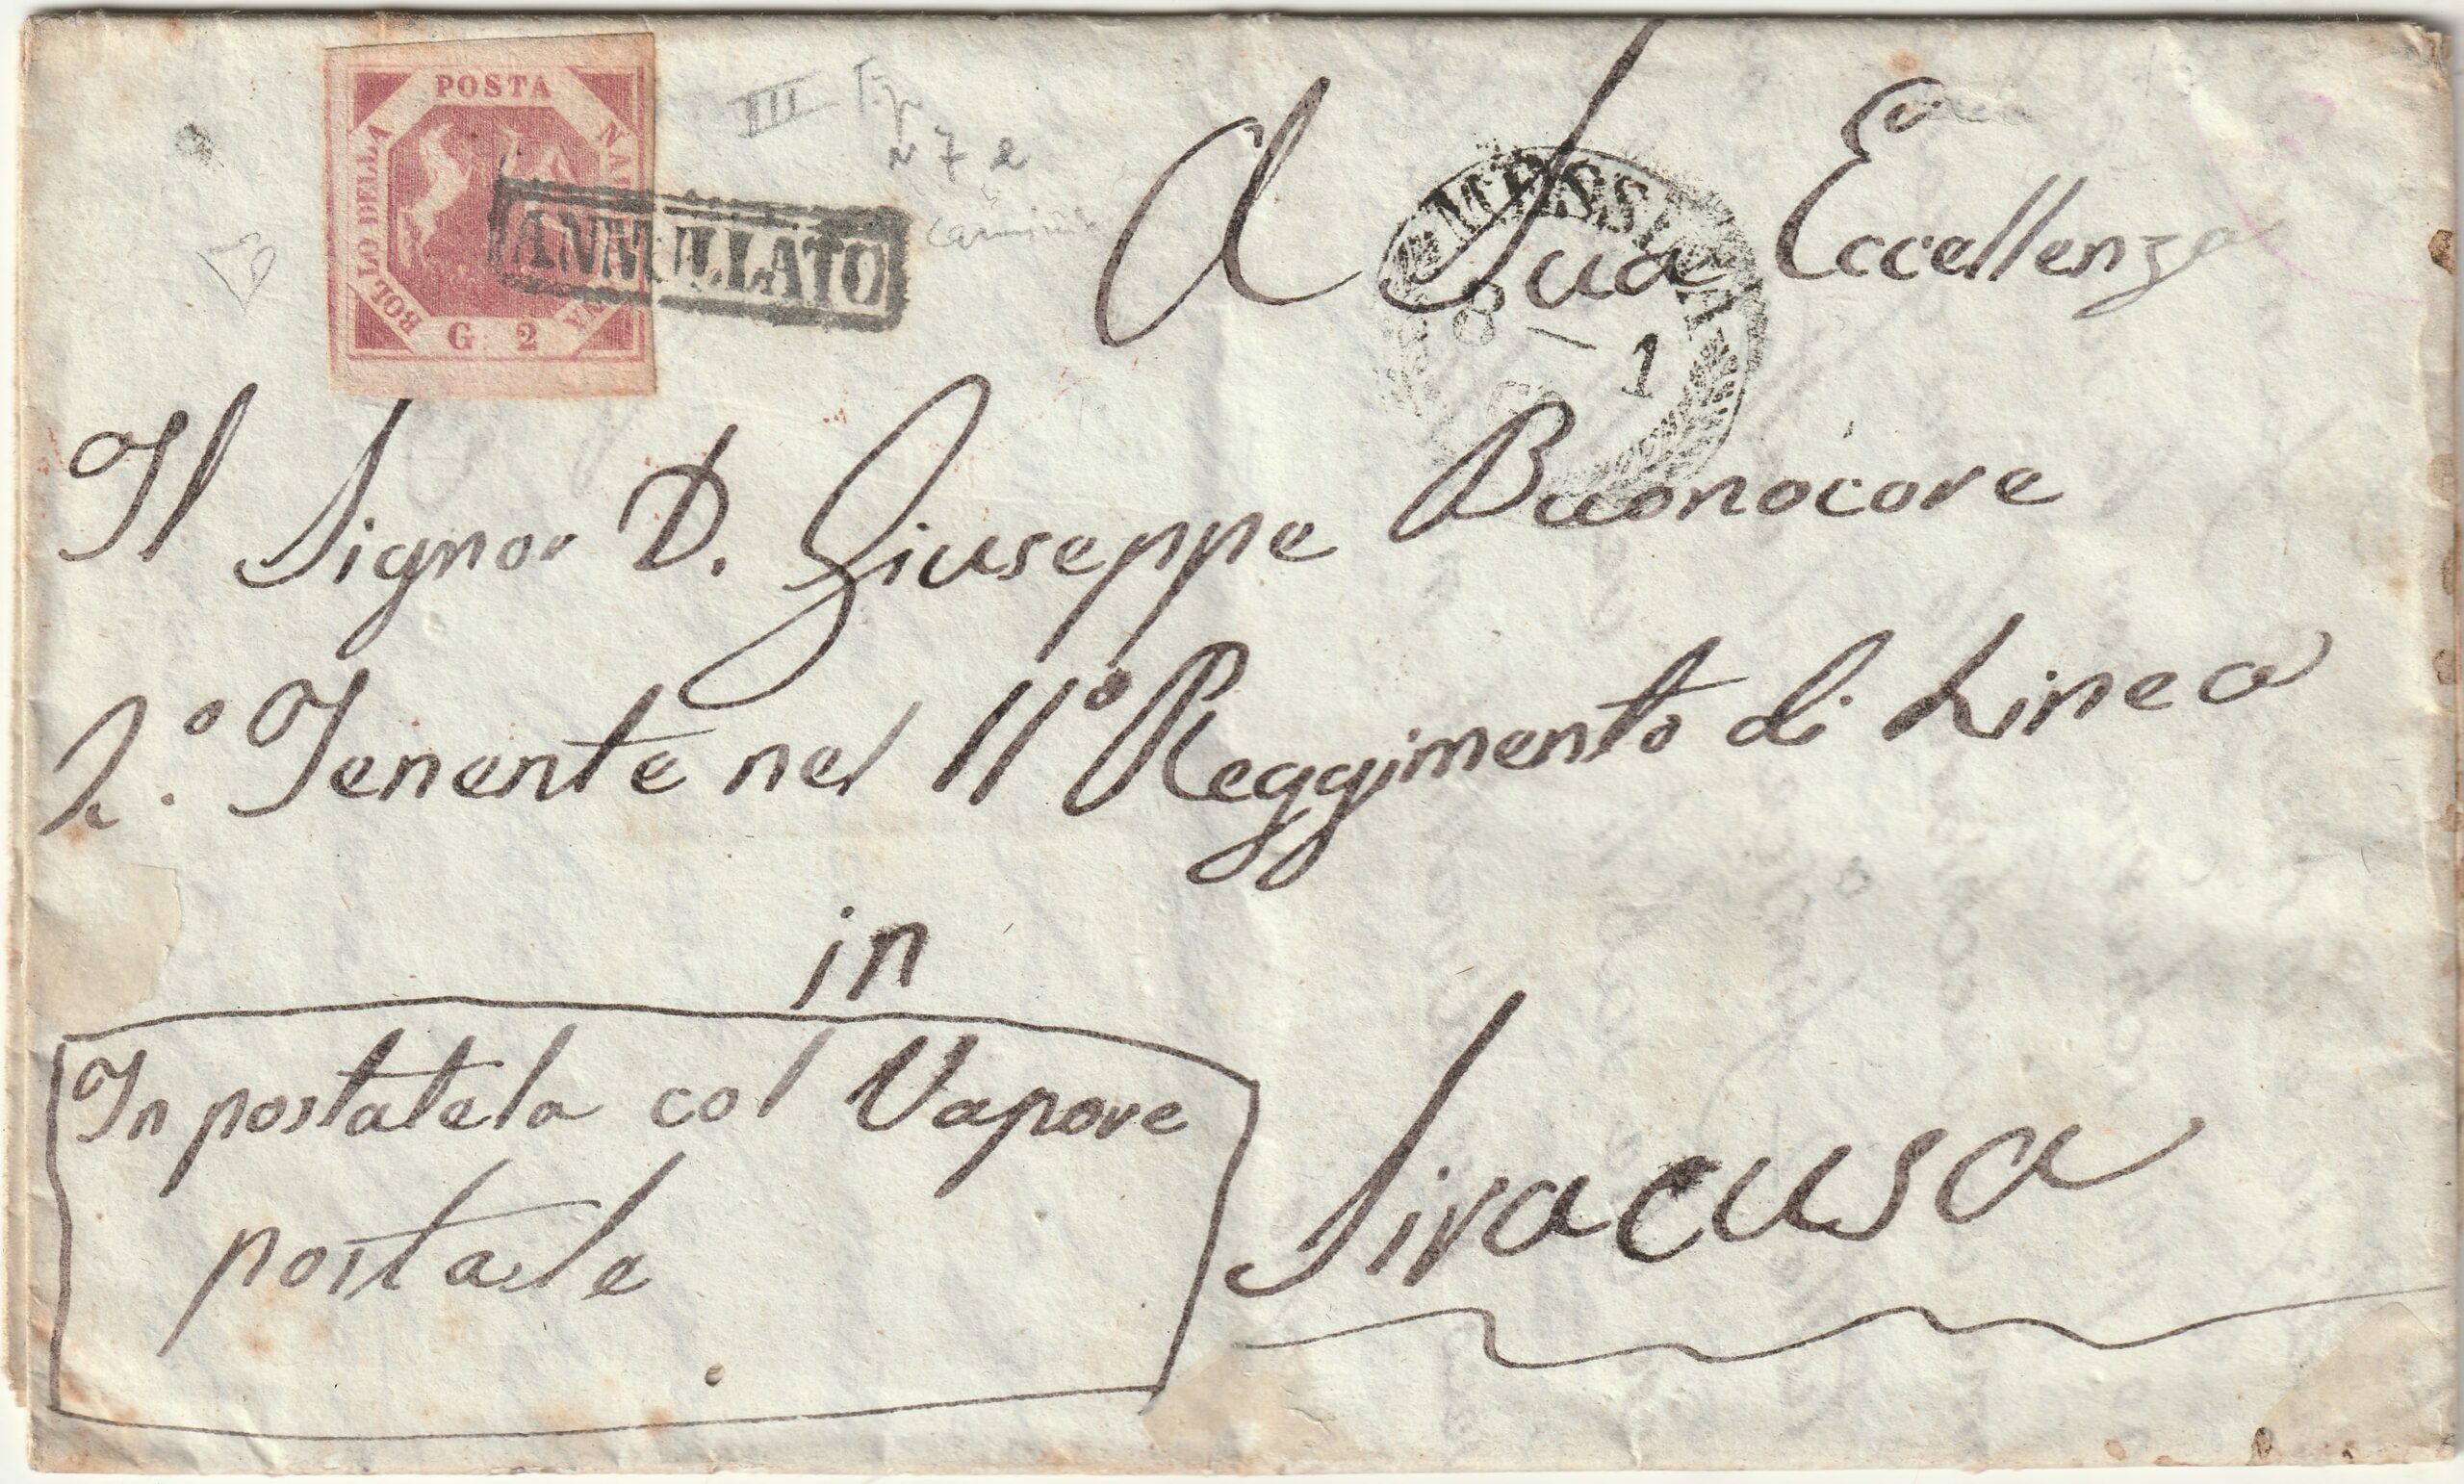 POSTA
NAPOLETANA
BOLLO DELLA
G. 2
ANNULLATO
III
N 7 e
MESSINA
8 1
A Sua Eccellenza
Il Signor D. Giuseppe Buonocore
2.° Tenente nel 11° Reggimento di Linea
in
In postatela col Vapore
postale
Siracusa